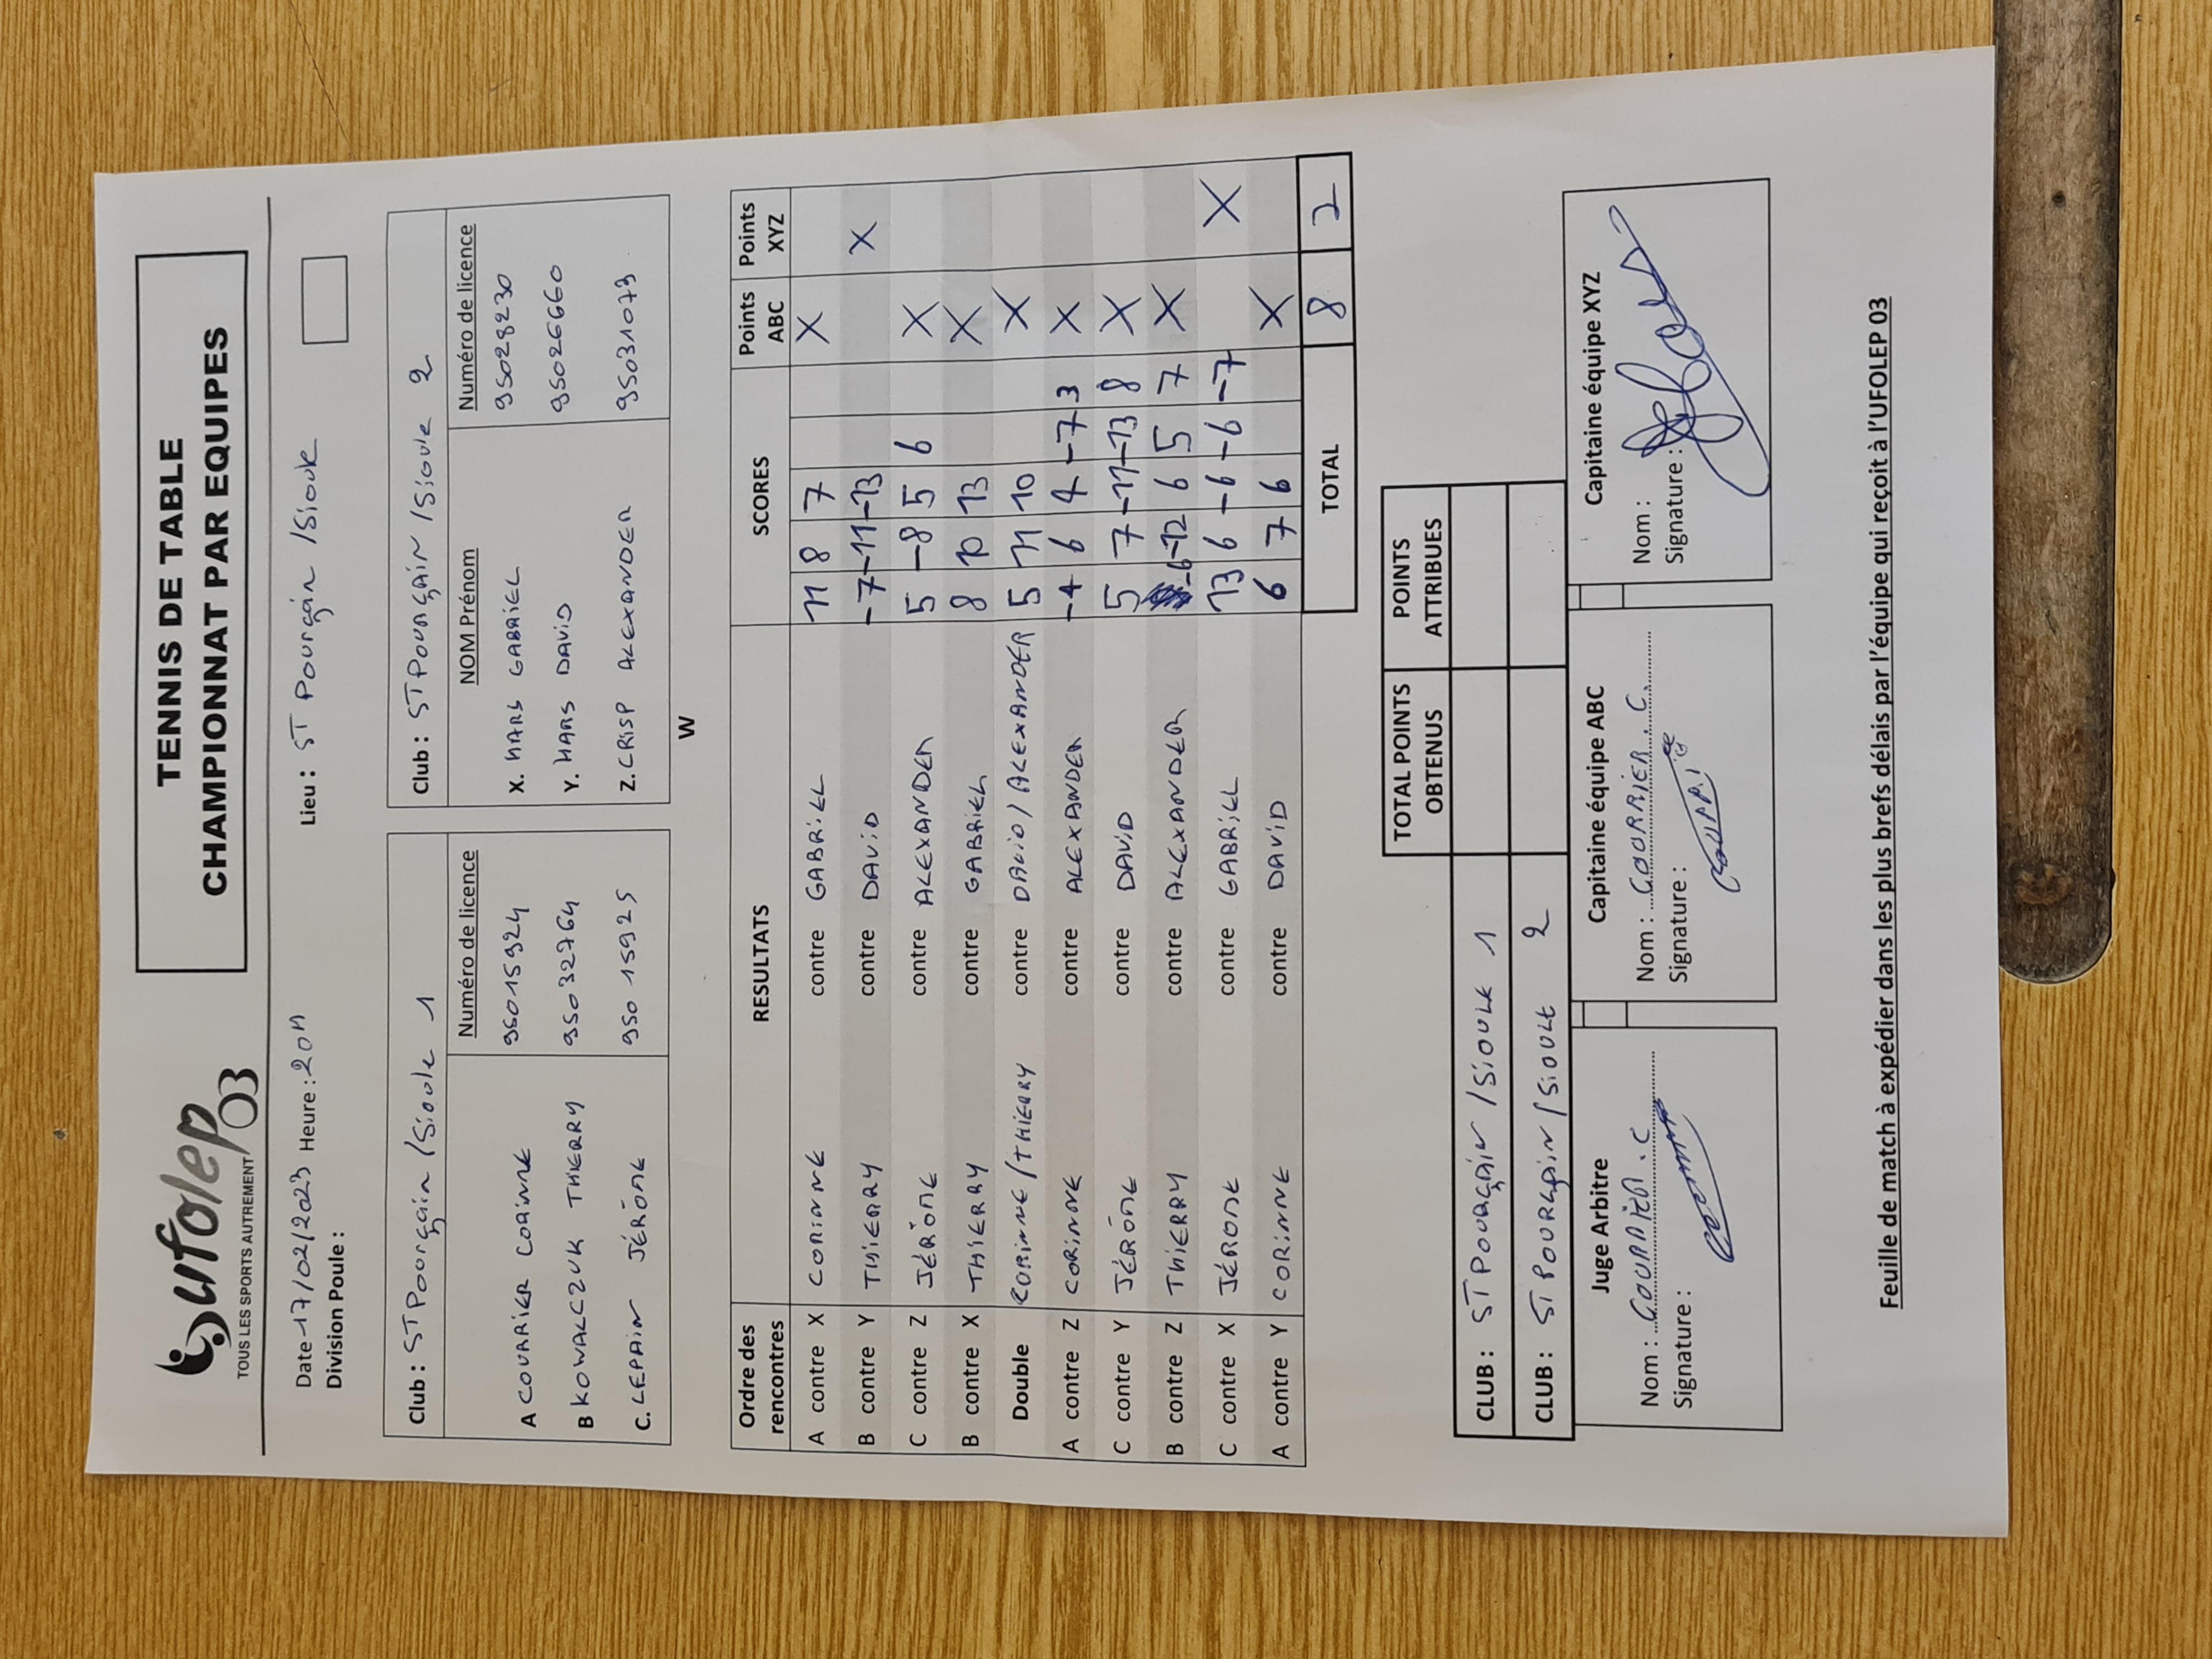 ufolep 03
TOUS LES SPORTS AUTREMENT
TENNIS DE TABLE
CHAMPIONNAT PAR EQUIPES
Date 17/02/2023 Heure : 20H Lieu : ST Pourçain /Sioule
Division Poule :
Club : ST Pourçain /Sioule 1
Numéro de licence
A COURRIER CORINNE 95015924
B KOWALCZUK THIERRY 95032764
C. LEPAIN JÉRÔME 95015925
Club : ST Pourçain /Sioule 2
NOM Prénom Numéro de licence
X. HARS GABRIEL 95028230
Y. HARS DAVID 95026660
Z. CRISP ALEXANDER 95031073
W
Ordre des rencontres RESULTATS SCORES Points ABC Points XYZ
A contre X CORINNE contre GABRIEL 11 8 7 X
B contre Y THIERRY contre DAVID -7 -11 -13 X
C contre Z JÉRÔME contre ALEXANDER 5 -8 5 6 X
B contre X THIERRY contre GABRIEL 8 10 13 X
Double CORINNE/THIERRY contre DAVID/ALEXANDER 5 11 10 X
A contre Z CORINNE contre ALEXANDER -4 6 4 -7 3 X
C contre Y JÉRÔME contre DAVID 5 7 -11 -13 8 X
B contre Z THIERRY contre ALEXANDER -6 -12 6 5 7 X
C contre X JÉROME contre GABRIEL 13 6 -6 -6 -7 X
A contre Y CORINNE contre DAVID 6 7 6 X
TOTAL 8 2
TOTAL POINTS OBTENUS POINTS ATTRIBUES
CLUB : ST POURÇAIN /SIOULE 1
CLUB : ST POURÇAIN /SIOULE 2
Juge Arbitre
Nom : COURRIER . C
Signature :
Capitaine équipe ABC
Nom : COURRIER C.
Signature :
Capitaine équipe XYZ
Nom :
Signature :
Feuille de match à expédier dans les plus brefs délais par l'équipe qui reçoit à l'UFOLEP 03